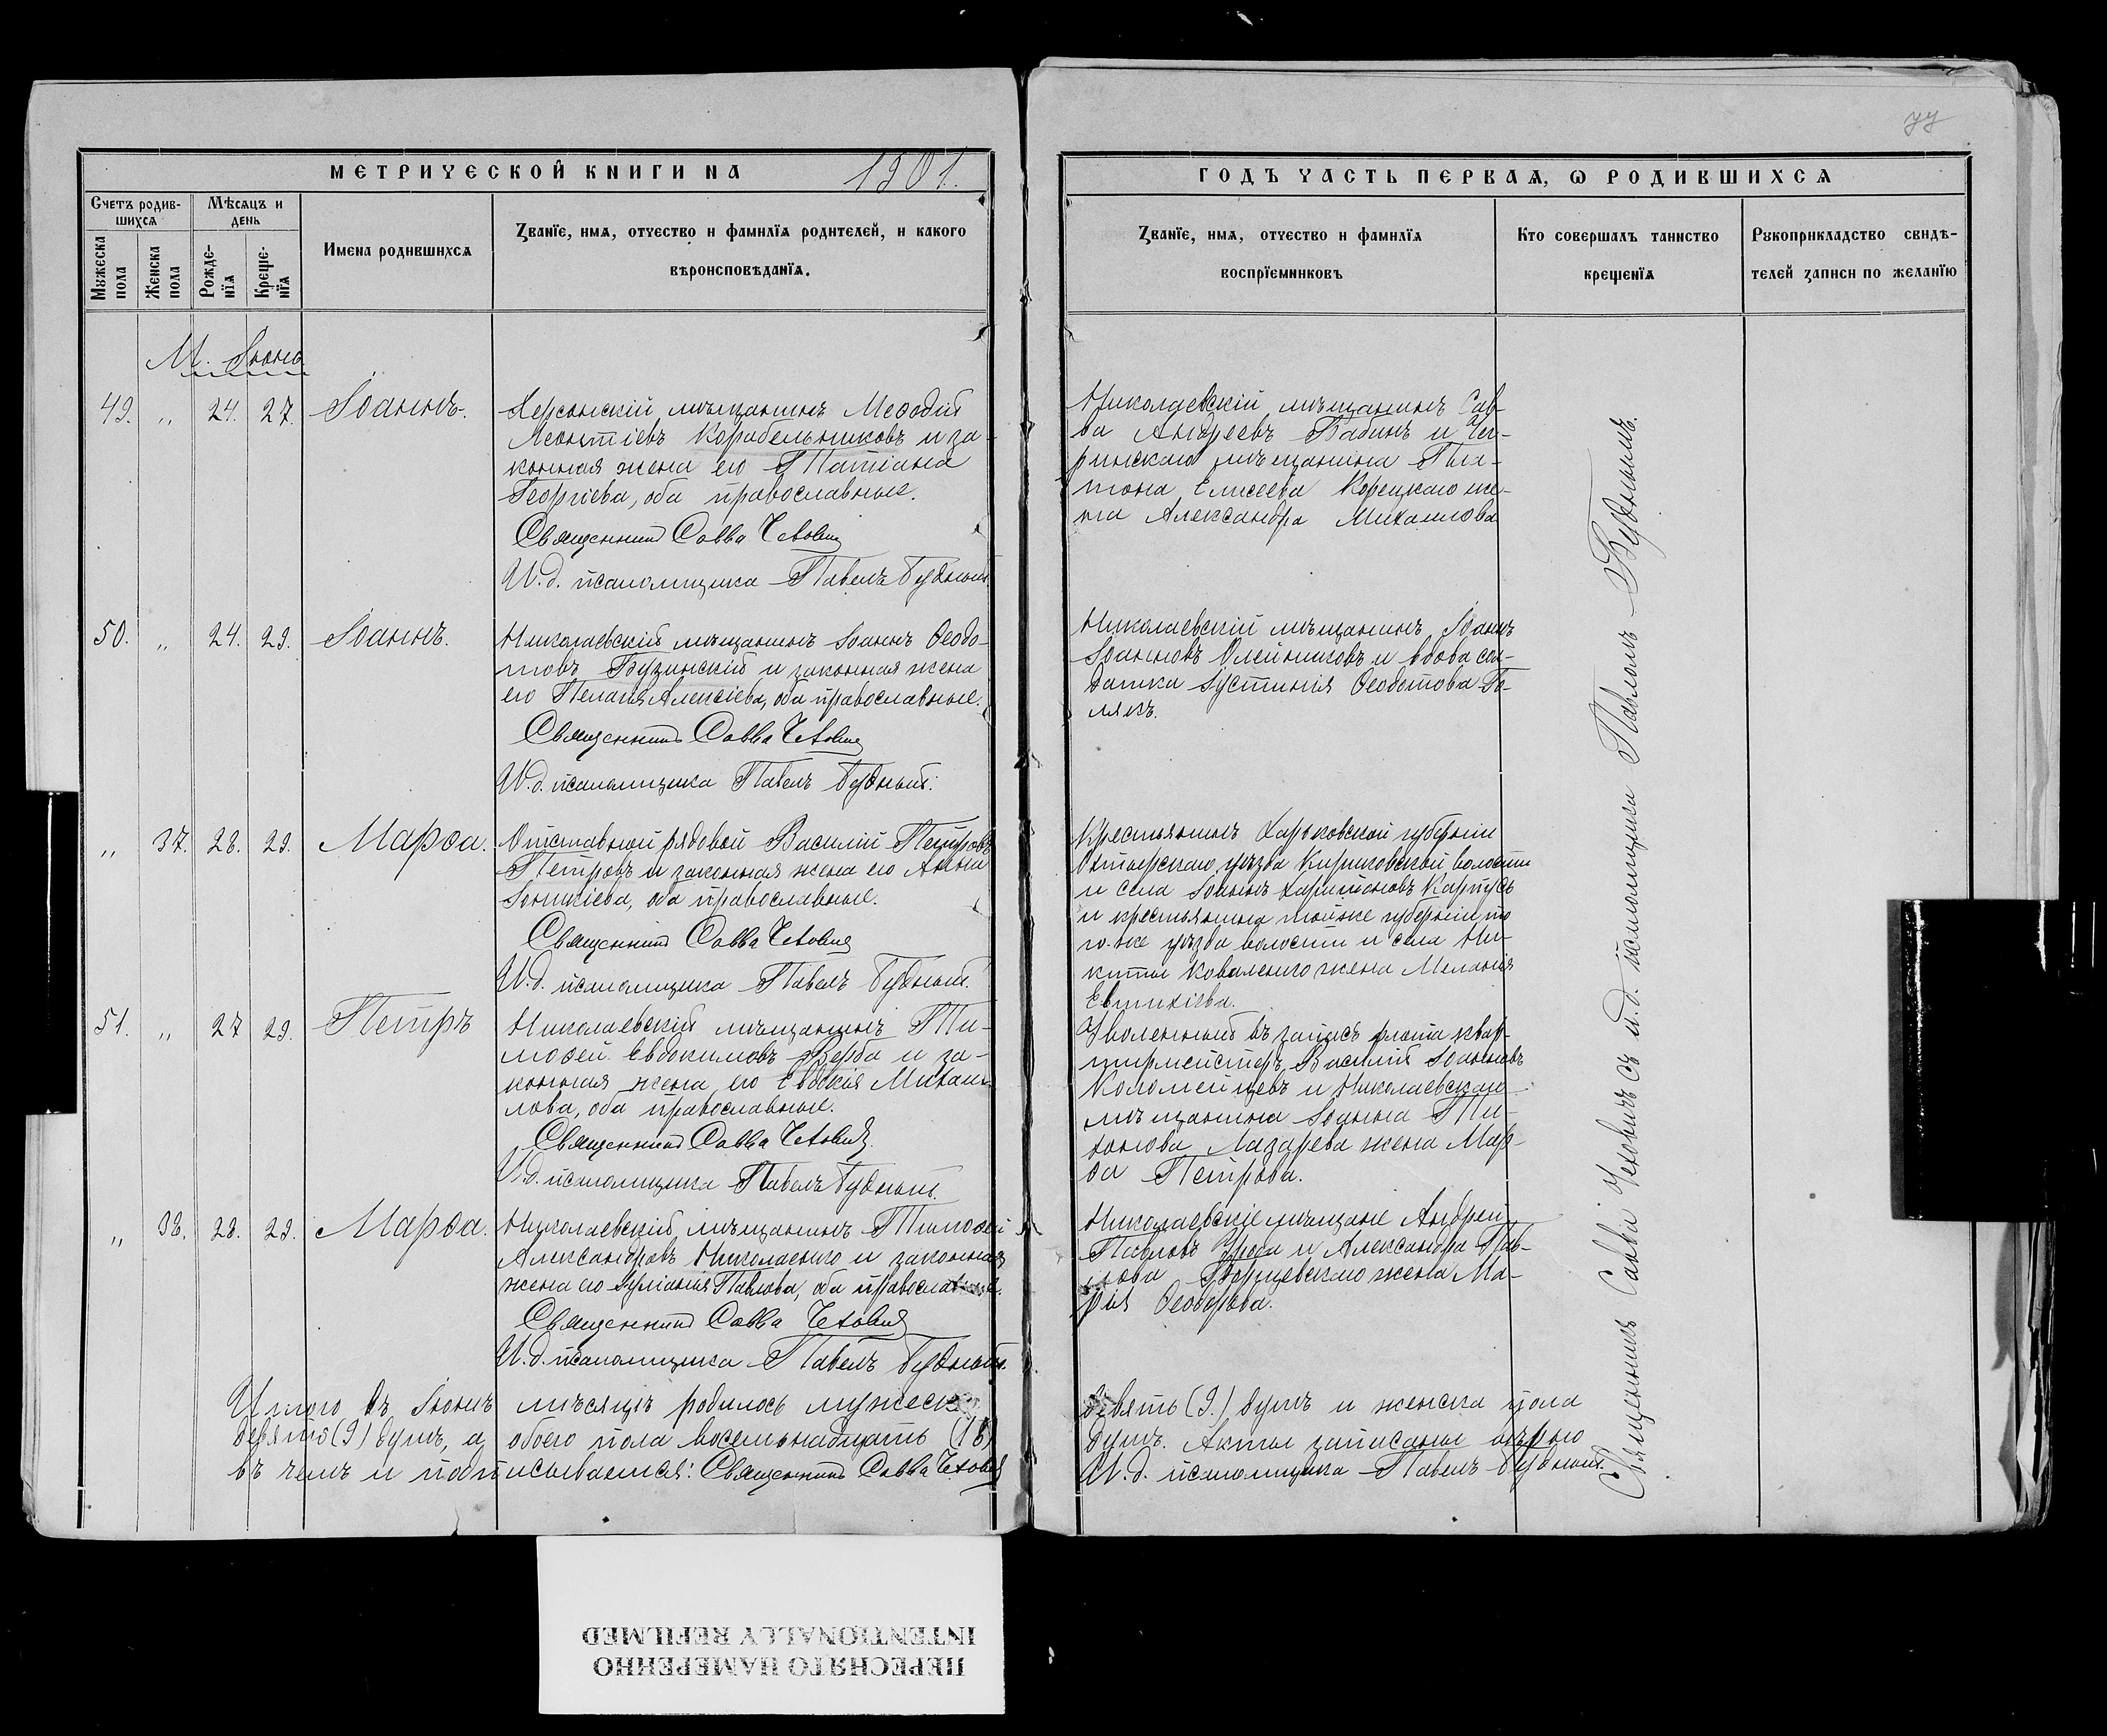 77
МЕТРИЧЕСКОЙ КНИГИ НА 1901.
ГОДЪ ЧАСТЬ ПЕРВАѦ, Ѡ РОДИВШИХСѦ
Счетъ родив-
шихсѧ
Мѣсѧцъ и
день
Мꙋжеска
пола
Женска
пола
Рожде-
нїѧ
Креще-
нїѧ
Имена родившихсѧ
Званїе, имѧ, отчество и фамилїѧ родителей, и какого
вѣроисповѣданїѧ.
Званїе, имѧ, отчество и фамилїѧ
воспрїемниковъ
Кто совершалъ таинство
крещенїѧ
Рꙋкоприкладство свидѣ-
телей записи по желанїю
М. Іюнь
49. „ 24. 27. Іоаннъ.
Херсонскій мѣщанинъ Меѳодій
Леонтіевъ Корабельниковъ и за-
конная жена его Татіана
Георгіева, оба православные.
Священникъ Савва Чехович
И.д. псаломщика Павелъ Будный.
Николаевскій мѣщанинъ Сав-
ва Андреевъ Бабинъ и Чи-
ринскаго мѣщанина Пла-
тона Елисеева Корецкаго же-
на Александра Михаилова
50. „ 24. 29. Іоаннъ.
Николаевскій мѣщанинъ Іоаннъ Ѳеодо-
товъ Бузинскій и законная жена
его Пелагія Алексіева, оба православные.
Священникъ Савва Чехович
И.д. псаломщика Павелъ Будный.
Николаевскій мѣщанинъ Іоаннъ
Іоанновъ Олейниковъ и вдова сол-
датка Іустинія Ѳеодотова По-
лякъ.
„ 37. 28. 29. Марѳа.
Отставной рядовой Василий Петровъ
Петровъ и законная жена его Анна
Іоникіева, оба православные.
Священникъ Савва Чехович
И.д. псаломщика Павелъ Будный.
Крестьянинъ Харьковской губерніи
Ахтырскаго уѣзда Кириковской волости
и села Іоаннъ Харитоновъ Карпусь
и крестьянина той же губерніи то
го-же уѣзда волости и села Ни-
киты Коваленко жена Меланія
Евтихіева.
51. „ 27 29. Петръ
Николаевскій мѣщанинъ Ти-
моѳей Евдокимовъ Верба и за-
конная жена его Евдокія Михаи-
лова, оба православные.
Священникъ Савва Чехович
И.д. псаломщика Павелъ Будный.
Уволенный въ запасъ флота квар-
тирмейстеръ Василій Іоанновъ
Коломейцевъ и Николаевскаго
мѣщанина Іоанна Ти-
хонова Лазарева жена Мар-
ѳа Петрова.
„ 38. 28. 29. Марѳа.
Николаевскій мѣщанинъ Тимоѳей
Александровъ Николаенко и законная
жена его Іуліанія Павлова, оба православные.
Священникъ Савва Чехович
И.д. псаломщика Павелъ Будный.
Николаевскіе мѣщане Андрей
Павловъ и Александра Пав-
лова жена Ма-
рія Ѳеодорова.
Итого въ Іюнѣ мѣсяцѣ родилось мужеска девять (9.) душъ и женска пола
девять (9) душъ, а обоего пола восемьнадцать (18) душъ. Акты записаны вѣрно
въ чемъ и подписываемся: Священникъ Савва Чехович И.д. псаломщика Павелъ Будный.
Священникъ Савва Чеховичъ съ и.д. псаломщика Павломъ Буднымъ.
ПЕРЕСНЯТО НАМЕРЕННО
INTENTIONALLY REFILMED